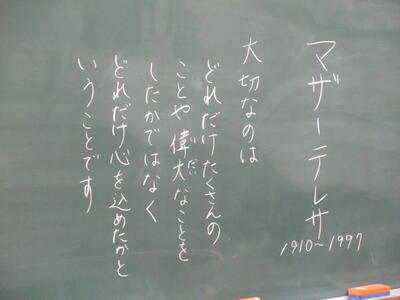 マザーテレサ
1910～1997
大切なのは
どれだけたくさんの
ことや偉大なことを
いだい
したかではなく
どれだけ心を込めたかと
いうことです